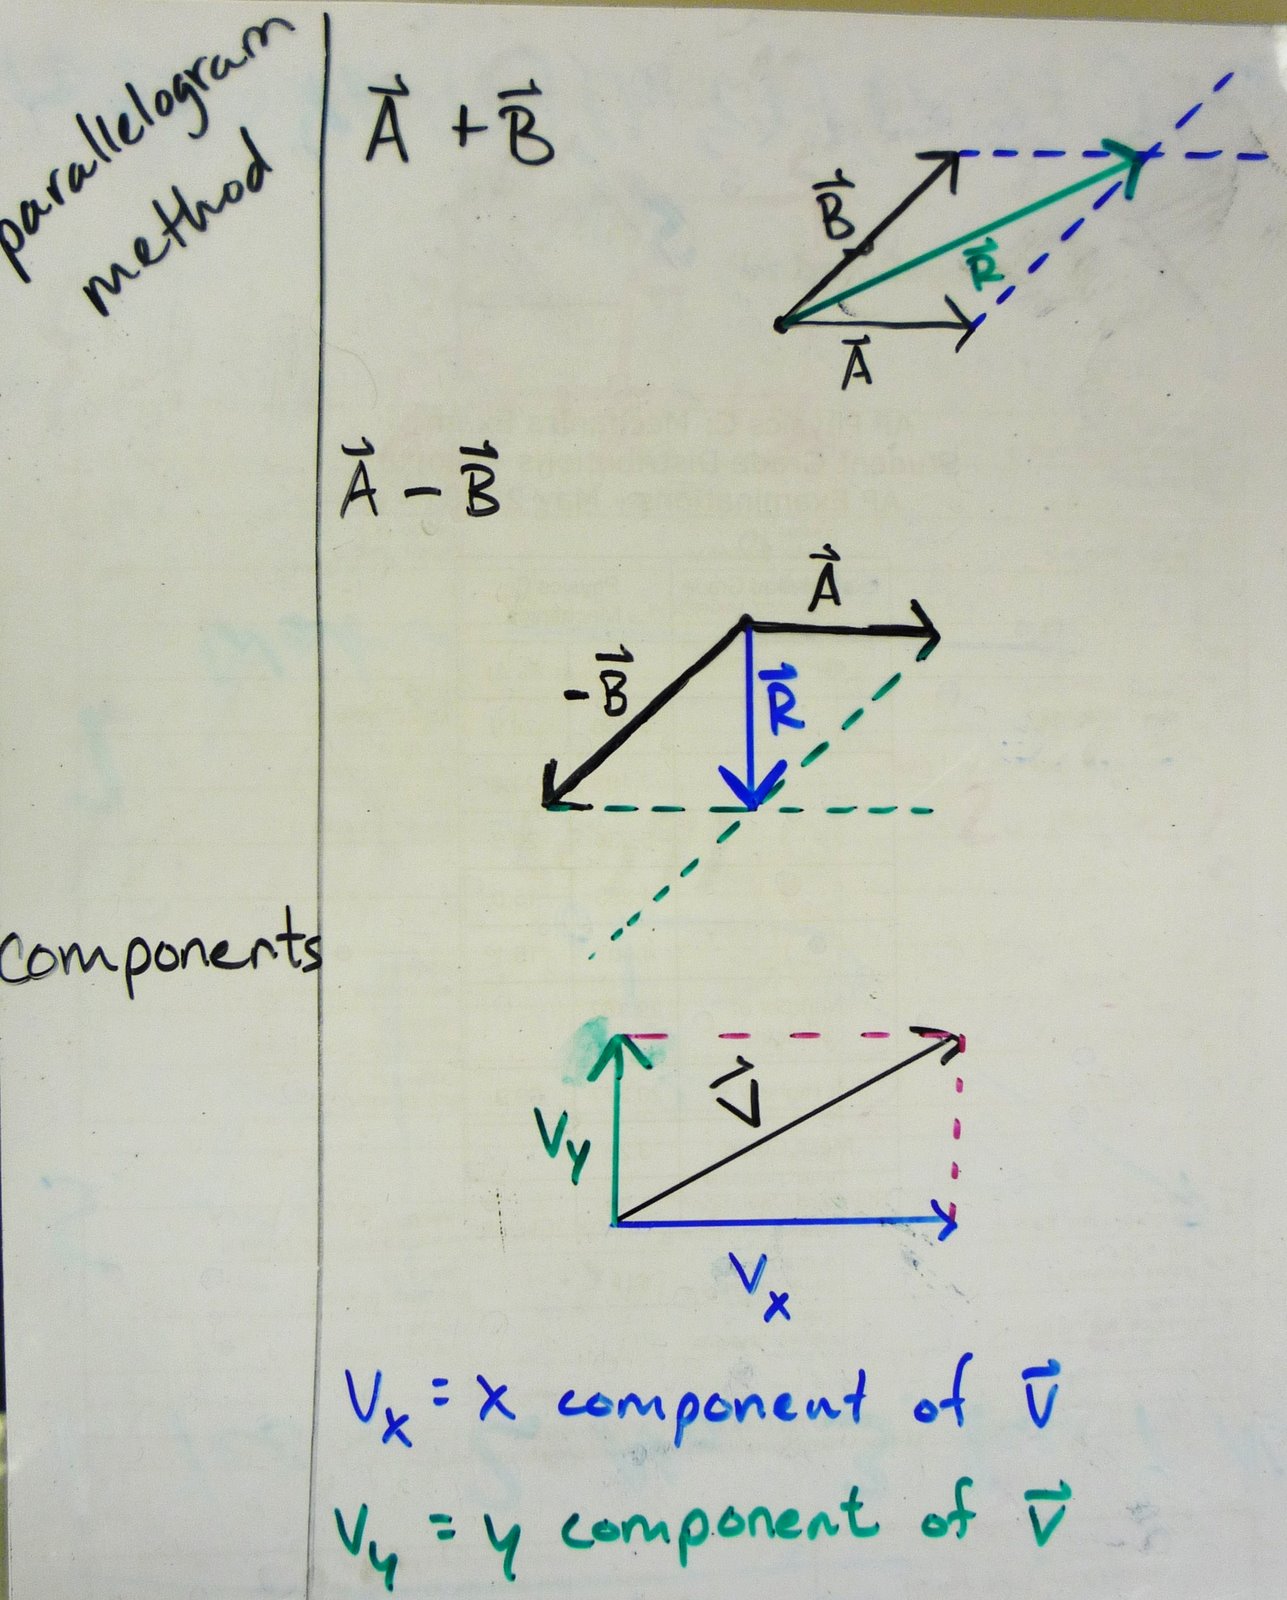 parallelogram
method
A⃗ + B⃗
B⃗
R⃗
A⃗
A⃗ - B⃗
A⃗
-B⃗
R⃗
components
V⃗
Vy
Vx
Vx = x component of V⃗
Vy = y component of V⃗